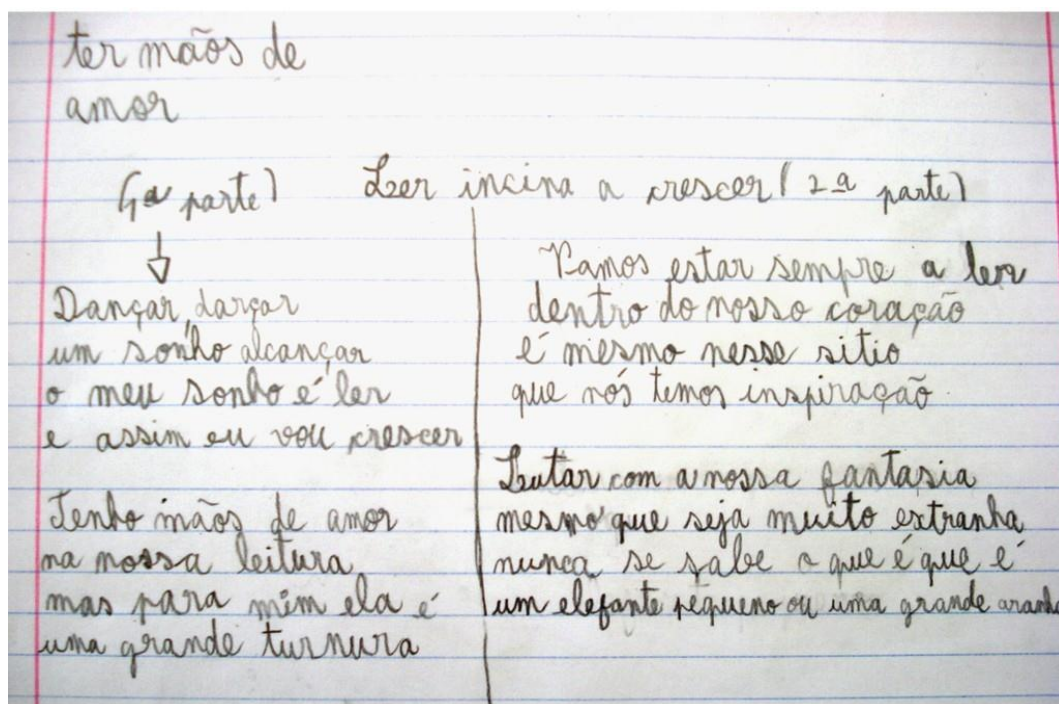 ter mãos de
amor
(1ª parte)
Ler incina a crescer (2ª parte)
Dançar, darçar
um sonho alcançar
o meu sonho é ler
e assim eu vou crescer
Tenho mãos de amor
na nossa leitura
mas para mim ela é
uma grande turnura
Vamos estar sempre a ler
dentro do nosso coração
é mesmo nesse sitio
que nós temos inspiração
Lutar com a nossa fantasia
mesmo que seja muito extranha
nunca se sabe o que é que é
um elefante pequeno ou uma grande aranha